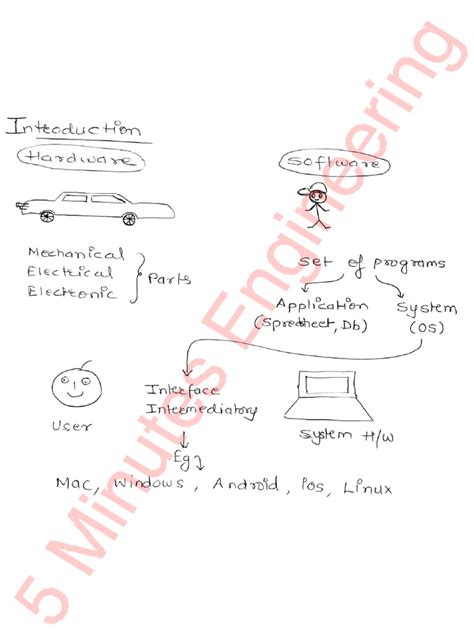 Introduction
Hardware
Software
Mechanical
Electrical
Electronic
Parts
set of programs
Application
(Spredheet, Db)
System
(OS)
User
Interface
Intermediatory
System H/W
Eg
Mac, Windows, Android, ios, Linux
5 Minutes Engineering